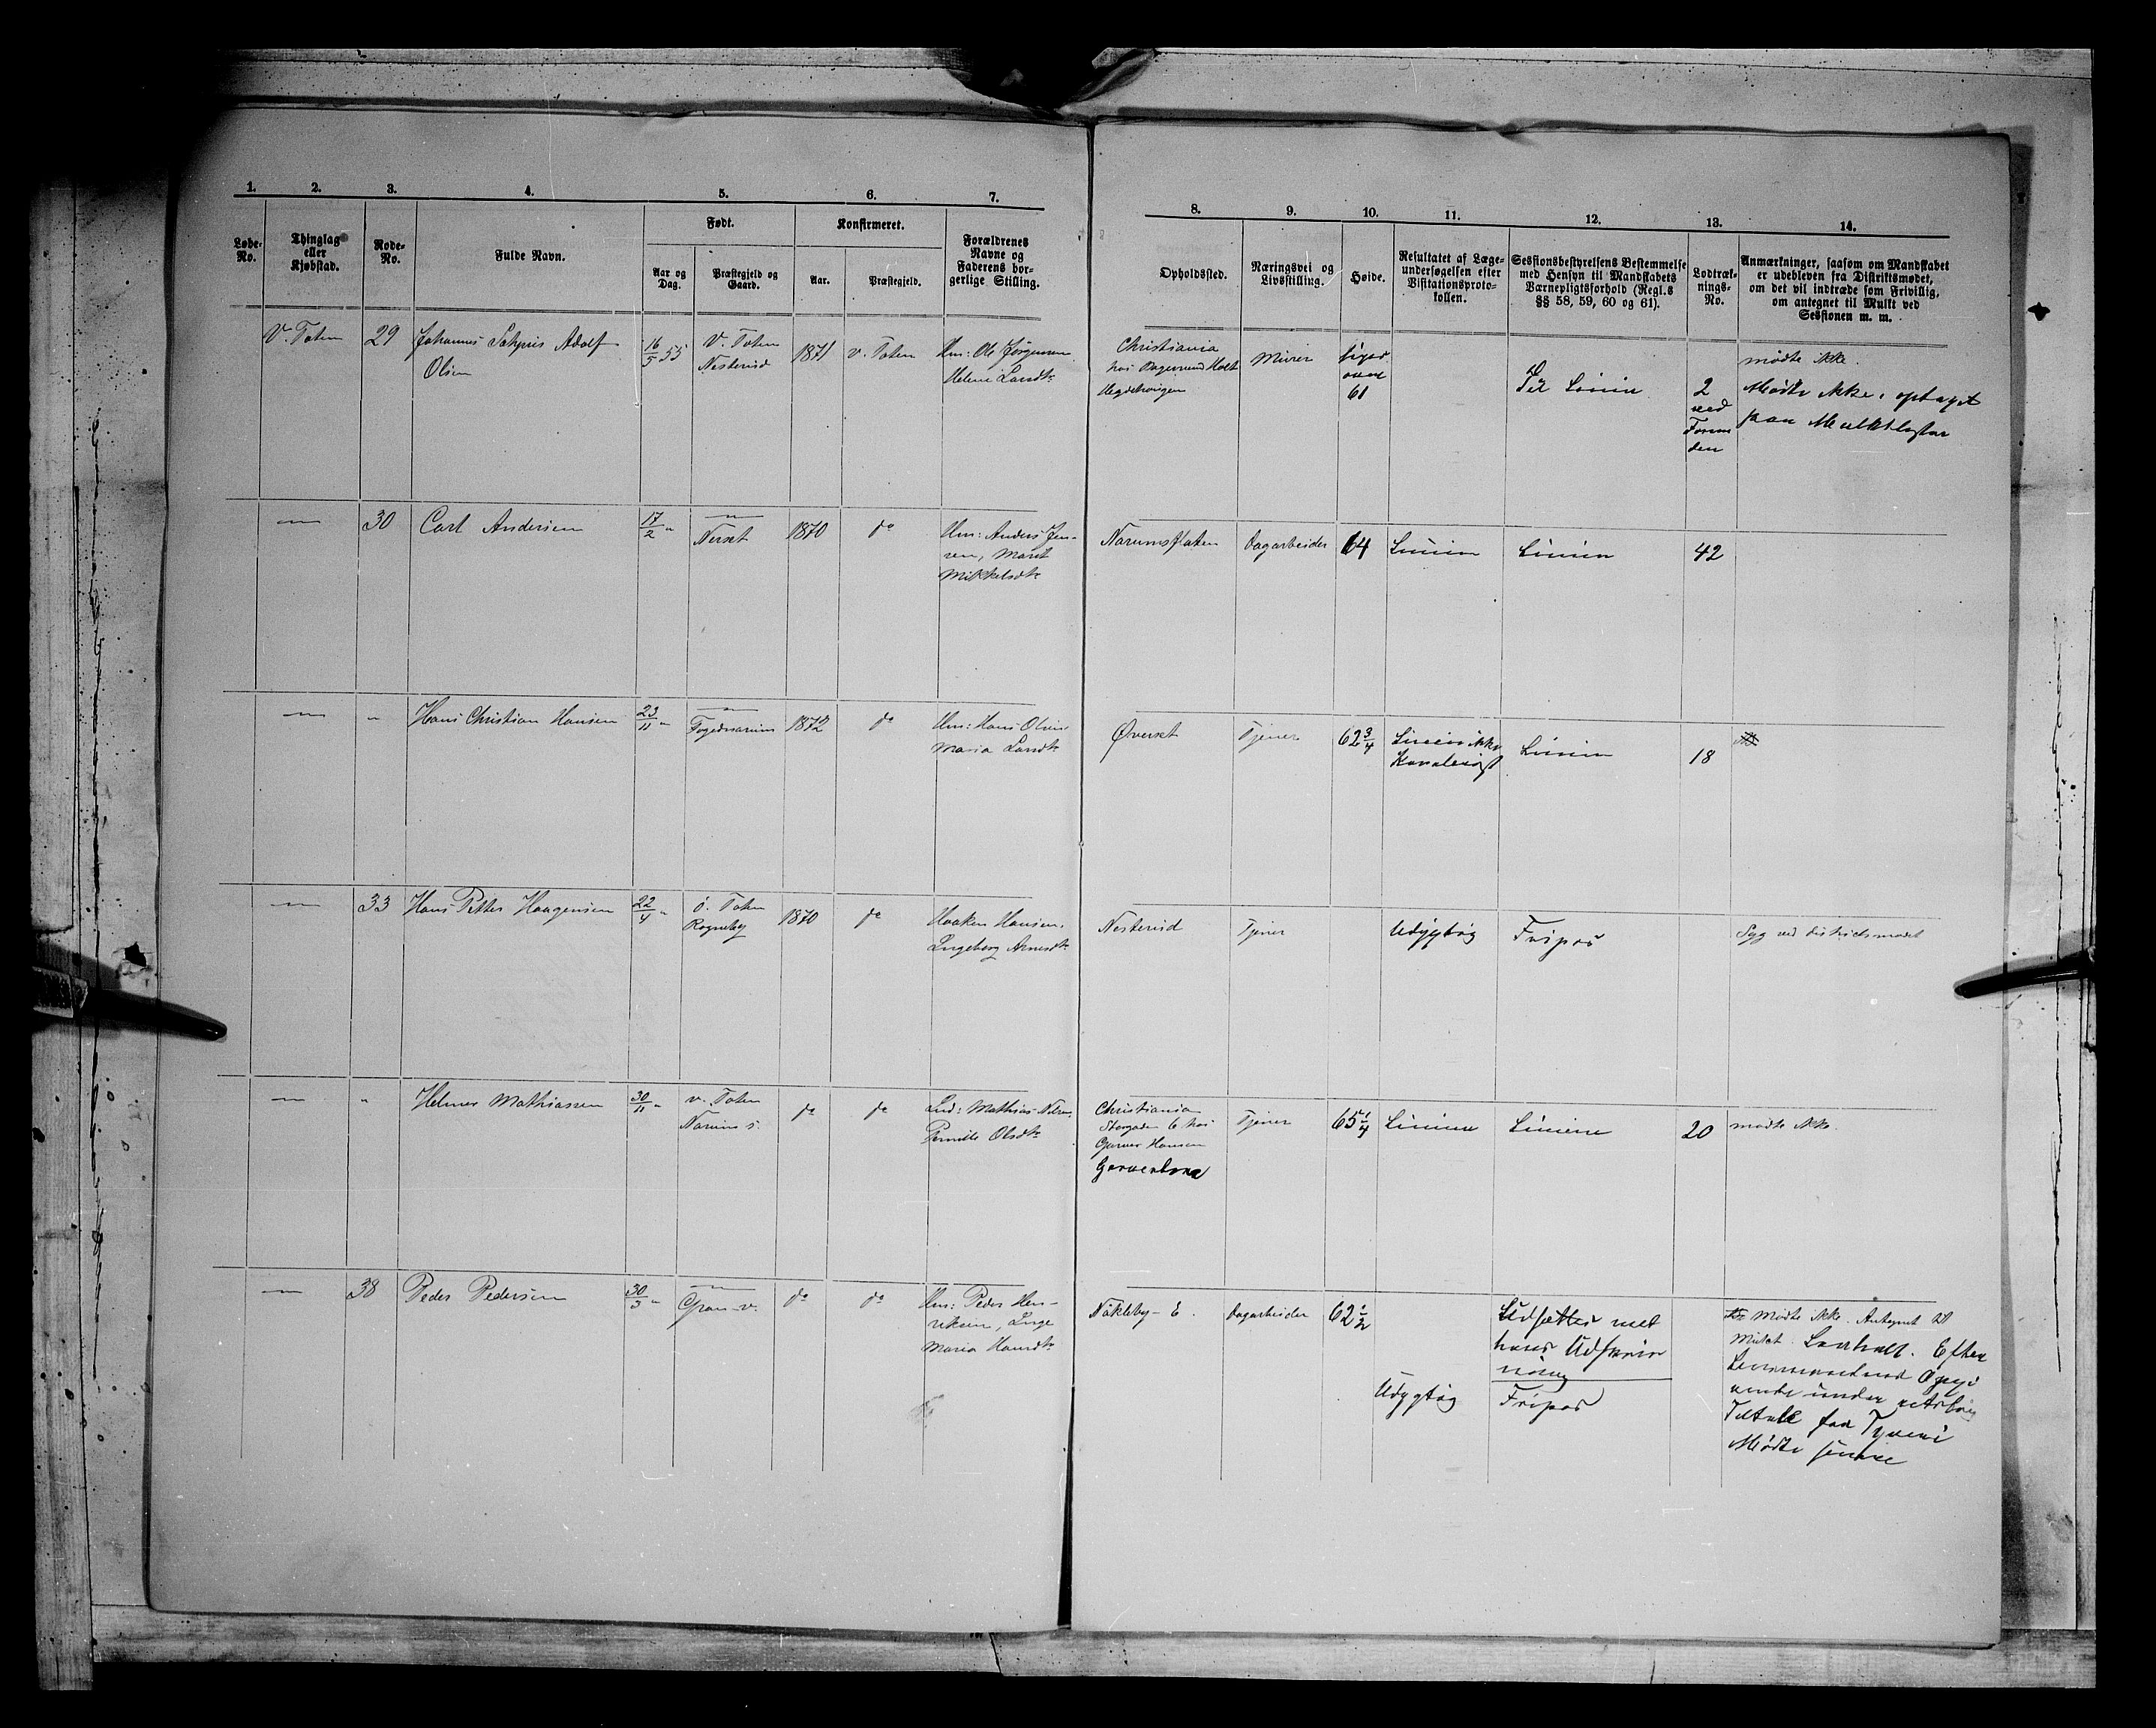 1. 2. 3. 4. 5. 6. 7.
Løbe-No. Thinglag eller Kjøbstad. Rode-No. Fulde Navn. Født. Aar og Dag. Præstegjeld og Gaard. Konfirmeret. Aar. Præstegjeld. Forældrenes Navne og Faderens borgerlige Stilling.
8. 9. 10. 11. 12. 13. 14.
Opholdssted. Næringsvei og Livsstilling. Høide. Resultatet af Lægeundersøgelsen efter Visitationsprotokollen. Sessionsbestyrelsens Bestemmelse med Hensyn til Mandskabets Værnepligtsforhold (Regl.s §§ 58, 59, 60 og 61). Lodtræknings-No. Anmærkninger, saasom om Mandskabet er udebleven fra Distriktsmødet, om det vil indtræde som Frivillig, om antegnet til Mulkt ved Sessionen m. m.
V. Toten 29 Johannes Adolf
Olsen
16/5 55 V. Toten
Nesterud
1871 v. Toten Hm: Ole Jørgensen
Helene Larsdtr
Christiania
hos Holt
Murer
over
61
Til Linien
2
ved
mødte ikke.
Mødte ikke, optaget
paa
— 30 Carl Andersen 17/2 " — Nerset 1870 do Hm: Anders Jen-
sen, Marit
Mikkelsdtr
Narumsflaten Dagarbeider 64 Linien Linien 42
— " Hans Christian Hansen 23/11 " — Fogednarum 1872 do Hm: Hans Olsen
Maria Larsdtr
Øverset Tjener 62 3/4 Linien ikke
Linien 18
— 33 Hans Petter Haagensen 22/4 " ö. Toten
Rogneby
1870 do Haaken Hansen,
Ingeborg Arnesdtr
Nesterud Tjener Udygtig Fripas Syg ved Distriktsmødet
— " Helmer Mathiassen 30/11 " v. Toten
Narum s.
do do Ind: Mathias
Pernille Olsdtr
Christiania
Storgaden 6 hos
Garver Hansen
Tjener 65 1/4 Linien Linien 20 mødte ikke.
— 38 Peder Pedersen 30/3 " — Gran v. do do Hm: Peder Hen-
riksen, Inge
Maria Hansdtr
Nökleby E. Dagarbeider 62 1/2
Udygtig
Udsættes med
hans
Fripas
Mødte ikke. Antegnet til
Mulkt. Efter
under
Tiltale for Tyveri
Mødte senere